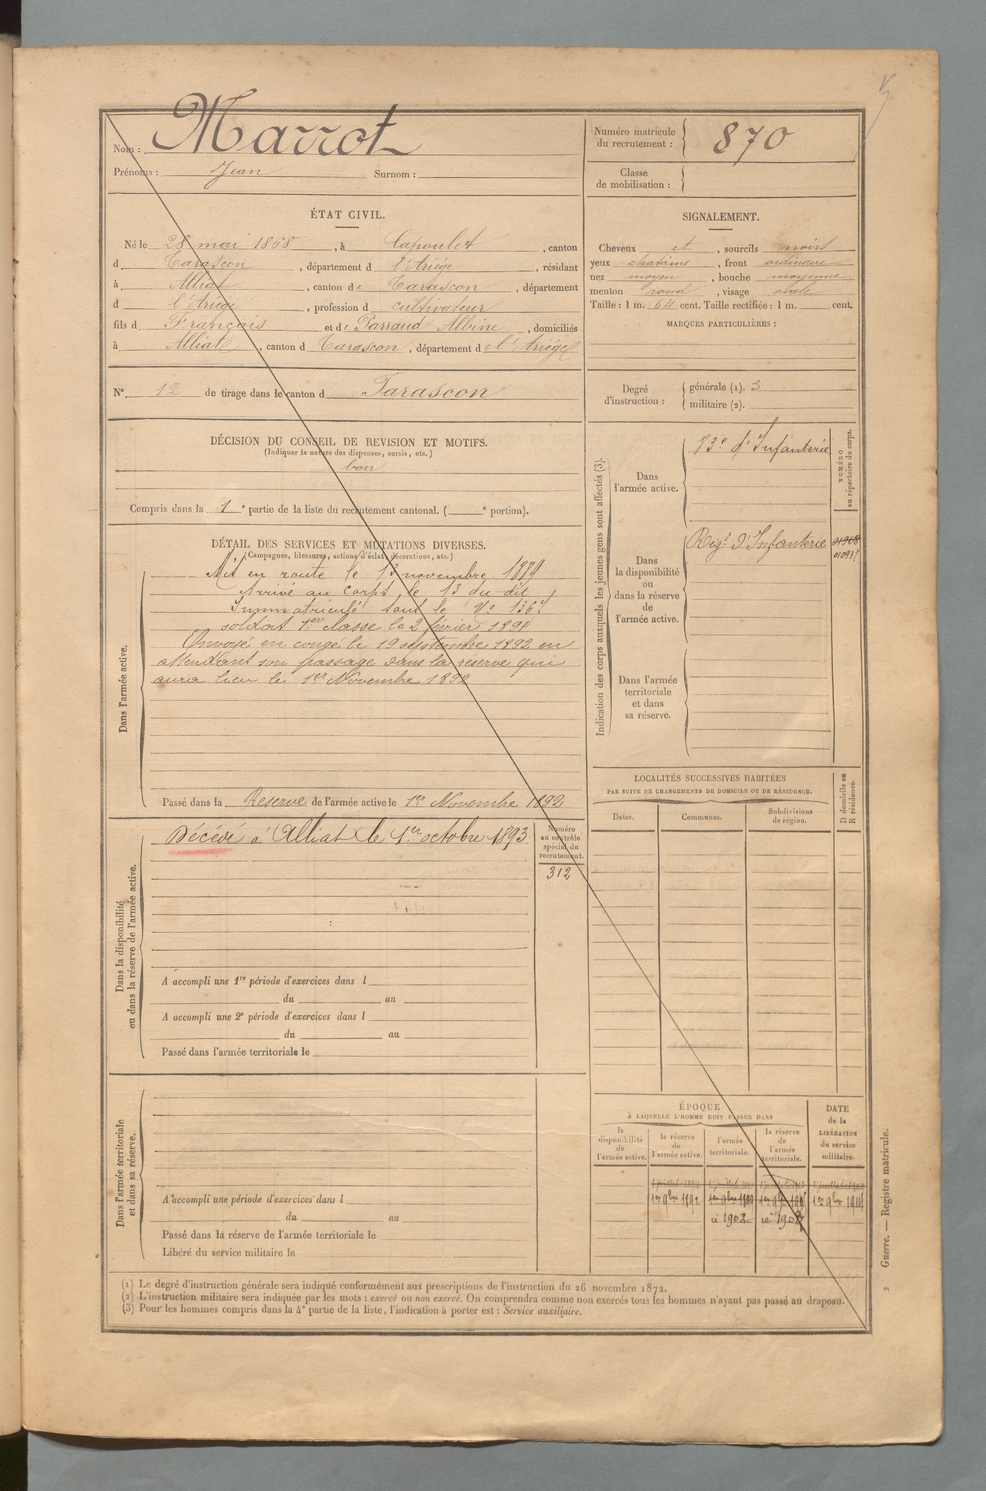 Nom : Marrot
Prénoms : Jean Surnom :
Numéro matricule du recrutement : 870
Classe de mobilisation :
ÉTAT CIVIL.
Né le 28 mai 1868, à Capoulet, canton
d Tarascon, département d l'Ariége, résidant
à Alliat, canton de Tarascon, département
d l'Ariége, profession d cultivateur
fils d François et de Parraud Albine, domiciliés
à Alliat, canton d Tarascon, département de l'Ariége
N° 12 de tirage dans le canton d Tarascon
SIGNALEMENT.
Cheveux et, sourcils noirs
yeux chatains, front ordinaire
nez moyen, bouche moyenne
menton rond, visage ovale
Taille : 1 m. 64 cent. Taille rectifiée : 1 m. cent.
MARQUES PARTICULIÈRES :
Degré d'instruction : générale (1). 3
militaire (2).
DÉCISION DU CONSEIL DE REVISION ET MOTIFS.
(Indiquer la nature des dispenses, sursis, etc.)
bon
Compris dans la 1e partie de la liste du recrutement cantonal. ( e portion).
DÉTAIL DES SERVICES ET MUTATIONS DIVERSES.
(Campagnes, blessures, actions d'éclat, décorations, etc.)
Dans l'armée active.
Mis en route le 13 novembre 1889
Arrivé au Corps le 13 du dit
Immatriculé sous le N°
soldat 1ere classe le 2 février 1891
Envoyé en congé le 19 septembre 1892 en
attendant son passage dans la réserve qui
aura lieu le 1er Novembre 1892
Passé dans la Réserve de l'armée active le 1er Novembre 1892
Dans la disponibilité
ou dans la réserve de l'armée active.
Décédé à Alliat le 1er octobre 1893
Numéro
au contrôle
spécial du
recrutement.
312
A accompli une 1re période d'exercices dans l
du au
A accompli une 2e période d'exercices dans l
du au
Passé dans l'armée territoriale le
Dans l'armée territoriale
et dans sa réserve.
A accompli une période d'exercices dans l
du au
Passé dans la réserve de l'armée territoriale le
Libéré du service militaire le
Indication des corps auxquels les jeunes gens sont affectés (3).
NUMÉRO
au répertoire du corps.
Dans
l'armée active.
83e d'Infanterie
Dans
la disponibilité
ou
dans la réserve
de
l'armée active.
Régt d'Infanterie
Dans l'armée
territoriale
et dans
sa réserve.
LOCALITÉS SUCCESSIVES HABITÉES
PAR SUITE DE CHANGEMENTS DE DOMICILE OU DE RÉSIDENCE.
Dates. Communes. Subdivisions
de région.
D domicile ou
R résidence.
ÉPOQUE
À LAQUELLE L'HOMME DOIT PASSER DANS
la
disponibilité
de
l'armée active.
la réserve
de
l'armée active.
l'armée
territoriale.
la réserve
de
l'armée
territoriale.
DATE
de la
LIBÉRATION
du service
militaire.
1er 9bre 1892
1902
(1) Le degré d'instruction générale sera indiqué conformément aux prescriptions de l'instruction du 26 novembre 1872.
(2) L'instruction militaire sera indiquée par les mots : exercé ou non exercé. On comprendra comme non exercés tous les hommes n'ayant pas passé au drapeau.
(3) Pour les hommes compris dans la 4e partie de la liste, l'indication à porter est : Service auxiliaire.
2 Guerre. — Registre matricule.